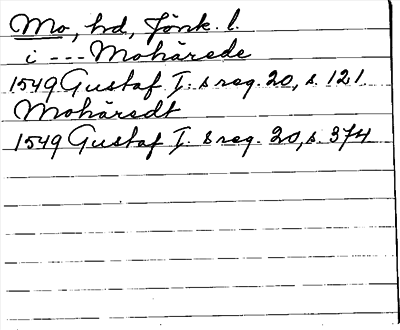 Mo, hd, Jönk. l.
i --- Mohärede
1549 Gustaf I:s reg. 20, s. 121.
Mohäredt
1549 Gustaf I:s reg. 20, s. 374